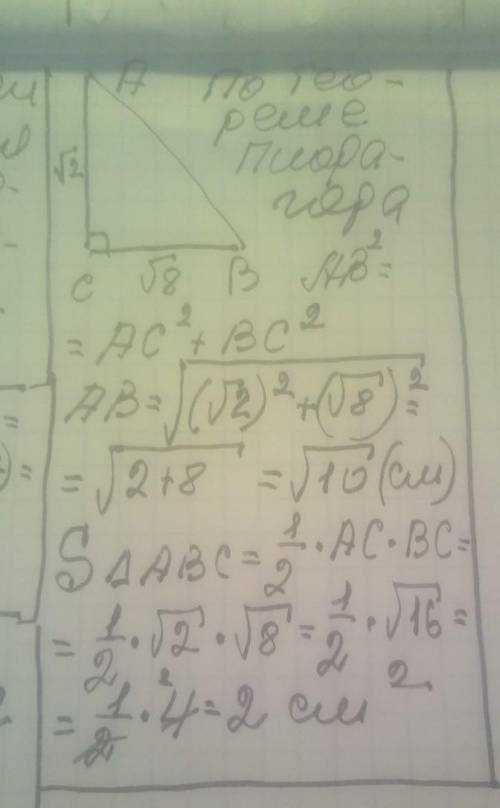 A По тео-
реме
Пифа-
гора
√2
C √8 B AB²=
= AC² + BC²
AB = √((√2)² + (√8)²) =
= √(2+8) = √10 (см)
S ΔABC = 1/2 · AC · BC =
= 1/2 · √2 · √8 = 1/2 · √16 =
= 1/2 · 4 = 2 см²